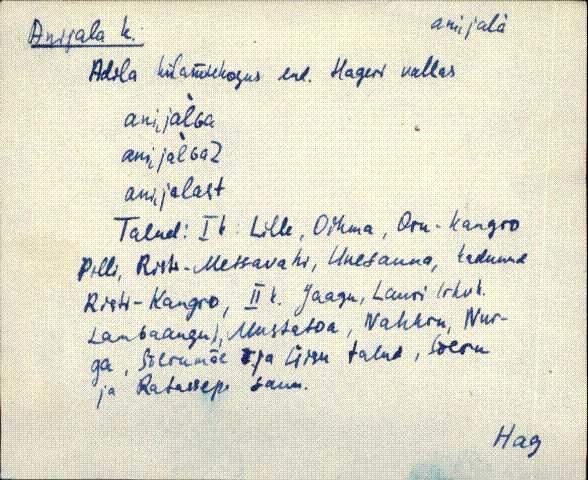 Anijala k. anijalà
Adila külanõukogus end. Hageri vallas
ani,jàlɢa
ani,jàlɢaZ
ani,jalast
Talud: I k: Lille, Oihma, Oru-Kangro
Pilli, Risti-Metsavahi, Unesauna, kadunud
Risti-Kangro, II k. Jaagu, Lauri
Mustatoa, Nahkru, Nur-
ga, Sõerumäe ja talud, Sõeru
ja Ratassepa saun.
Hag